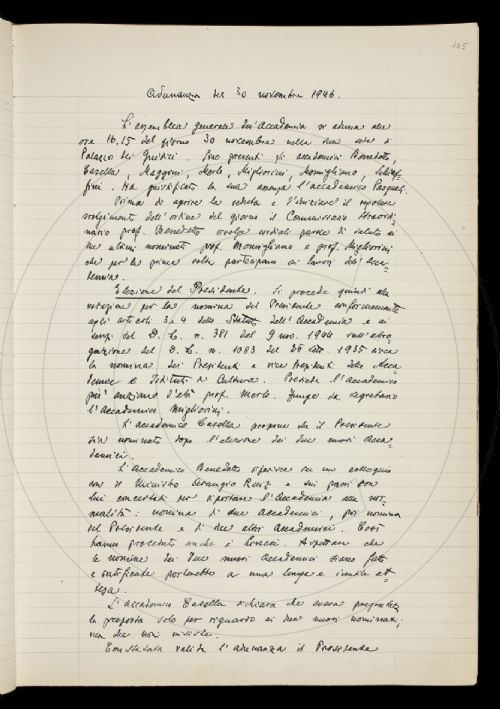 105
Adunanza del 30 novembre 1946.
L'assemblea generale dell'Accademia si aduna alle
ore 16,15 del giorno 30 novembre nella sua sede di
Palazzo dei Giudici. Sono presenti gli accademici Benedetto,
Casella, Maggini, Merlo, Migliorini, Momigliano, Schiaf-
fini. Ha giustificato la sua assenza l'accademico Pasquali.
Prima di aprire la seduta e d'iniziare il regolare
svolgimento dell'ordine del giorno il Commissario Straordi-
nario prof. Benedetto rivolge cordiali parole di saluto ai
due ultimi nominati prof. Momigliano e prof. Migliorini
che per la prima volta partecipano ai lavori dell'Acca-
demia.
Elezione del Presidente. Si procede quindi alla
votazione per la nomina del Presidente conformemente
agli articoli 3 e 4 dello Statuto dell'Accademia e ai
sensi del D. L. n. 381 del 9 nov. 1944 sull'abro-
gazione del D. L. n. 1083 del 26 sett. 1935 circa
la nomina dei Presidenti e vice Presidenti delle Acca-
demie e Istituti di Cultura. Presiede l'accademico
più anziano d'età prof. Merlo. Funge da segretario
l'accademico Migliorini.
L'accademico Casella propone che il Presidente
sia nominato dopo l'elezione dei due nuovi Acca-
demici.
L'accademico Benedetto riferisce su un colloquio
con il Ministro Arangio Ruiz e sui passi con
lui concertati per riportare l'Accademia alla nor-
malità: nomina di due Accademici, poi nomina
del Presidente e di due altri Accademici. Così
hanno proceduto anche i Lincei. Aspettare che
le nomine dei due nuovi Accademici siano fatte
e ratificate porterebbe a una lunga e inutile at-
tesa.
L'accademico Casella dichiara che aveva presentato
la proposta solo per riguardo ai due nuovi nominati,
ma che non insiste.
Constatata valida l'adunanza il Presidente